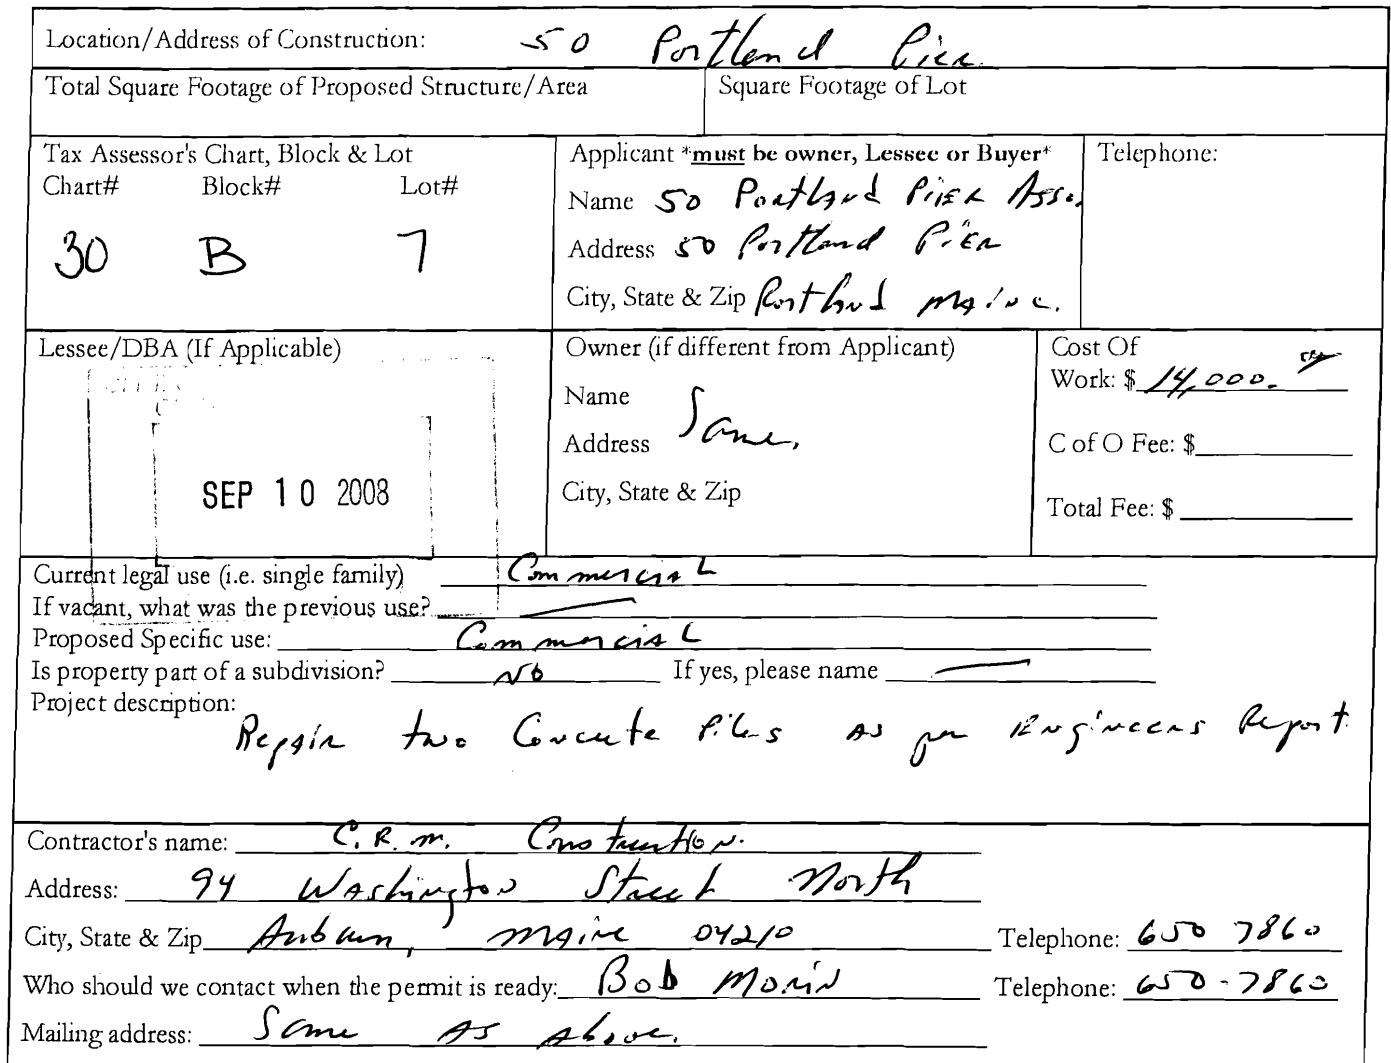 Location/Address of Construction: 50 Portland Pier
Total Square Footage of Proposed Structure/Area Square Footage of Lot
Tax Assessor's Chart, Block & Lot
Chart# Block# Lot#
30 B 7
Applicant *must be owner, Lessee or Buyer*
Name 50 Portland Pier Asso.
Address 50 Portland Pier
City, State & Zip Portland Maine.
Telephone:
Lessee/DBA (If Applicable)
SEP 10 2008
Owner (if different from Applicant)
Name
Same.
Address
City, State & Zip
Cost Of
Work: $ 14,000.
C of O Fee: $
Total Fee: $
Current legal use (i.e. single family) Commercial
If vacant, what was the previous use? —
Proposed Specific use: Commercial
Is property part of a subdivision? No If yes, please name —
Project description:
Repair two Concrete Piles as per Engineers Report
Contractor's name: C.R.M. Construction.
Address: 94 Washington Street North
City, State & Zip Auburn, Maine 04210 Telephone: 650 7860
Who should we contact when the permit is ready: Bob Morin Telephone: 650-7860
Mailing address: Same As Above.